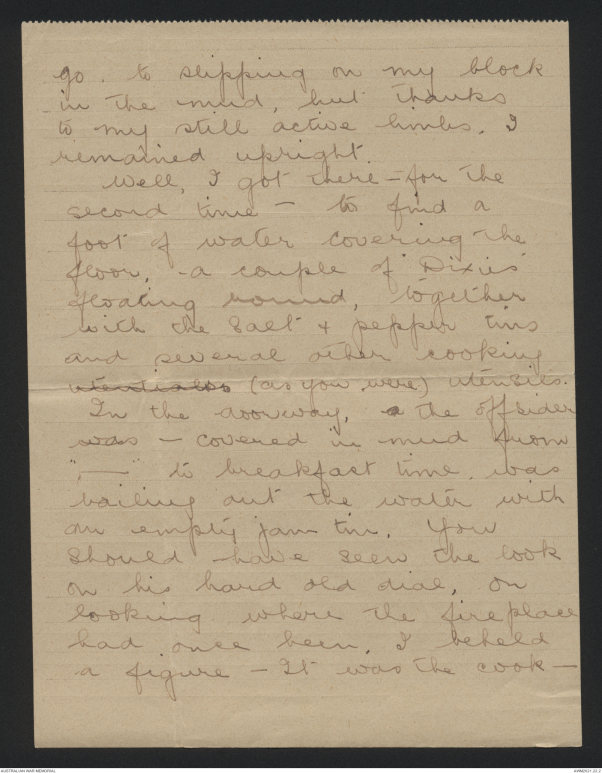 go. to slipping on my block
in the mud, but thanks
to my still active limbs, I
remained upright.
Well, I got there - for the
second time - to find a
foot of water covering the
floor, - a couple of "Dixies"
floating round, together
with the salt + pepper tins
and several other cooking
utentials (as you were) utensils.
In the doorway, a the offsider
was - covered in mud from
"—" to breakfast time, was
bailing out the water with
an empty jam tin. You
should have seen the look
on his hard old dial, on
looking where the fireplace
had once been, I beheld
a figure - It was the cook -
AUSTRALIAN WAR MEMORIAL